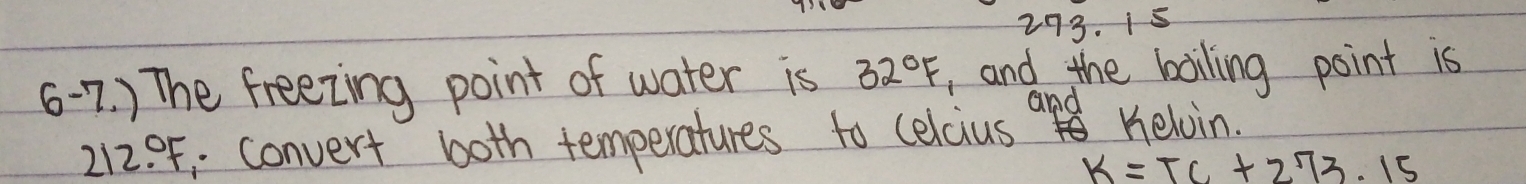 273.15
6-7.) The freezing point of water is 32°F, and the boiling point is
212.°F,. Convert both temperatures to Celcius and Kelvin.
K = TC + 273.15